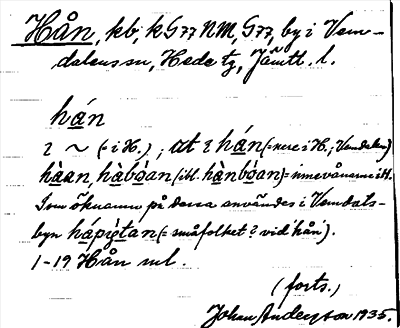 Hån, kb, k G77 NM, G77, by i Vem-
dalens sn, Hede tg, Jämtl. l.
hán
i ~ (= i H.); at i hán (= nere i H.; Vemdalen)
hàan, hàbóan (ibl. hànbóan) = innevånarne i H.
Som öknamn på dessa användes i Vemdals-
byn hápígtan (= småfolket i vid hån).
1-19 Hån ml.
(forts.)
Johan Anderson 1935.